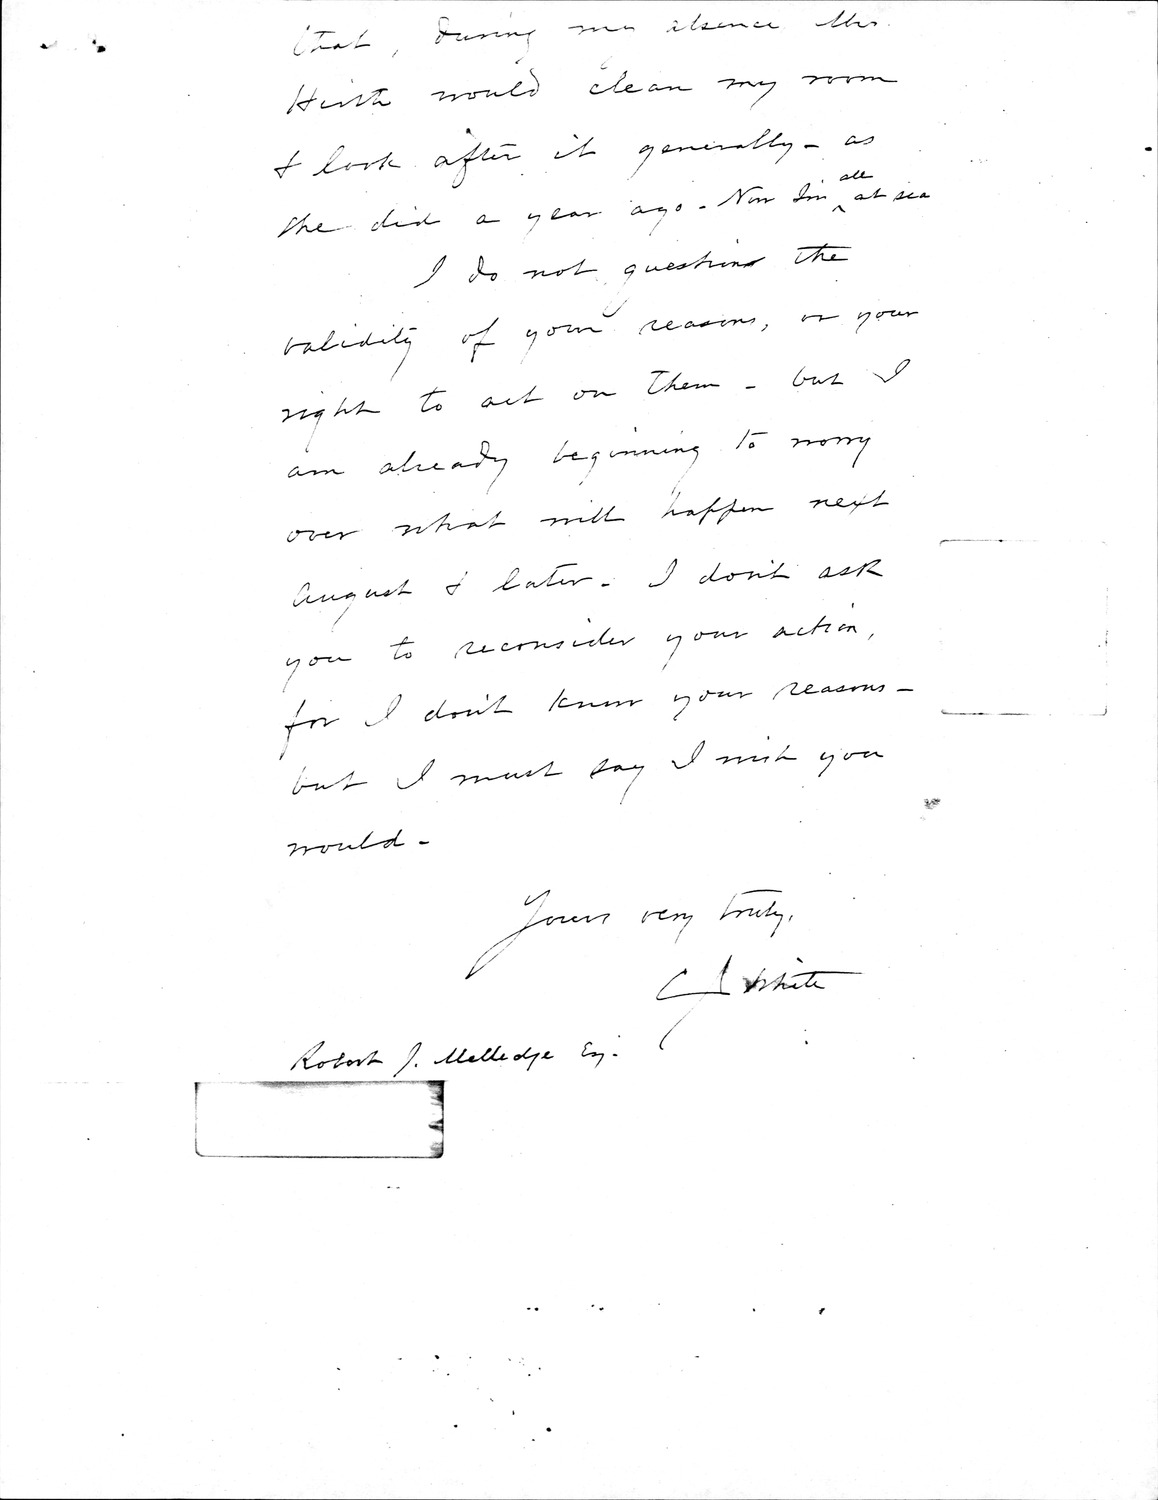 that, during my absence Mrs.
Hirth would clean my room
& look after it generally - as
she did a year ago - Now I'm all at sea
I do not question the
validity of your reasons, or your
right to act on them - but I
am already beginning to worry
over what will happen next
August & later - I don't ask
you to reconsider your action,
for I don't know your reasons -
but I must say I wish you
would -
Yours very truly,
C J White
Robert J. Melledge Esq.